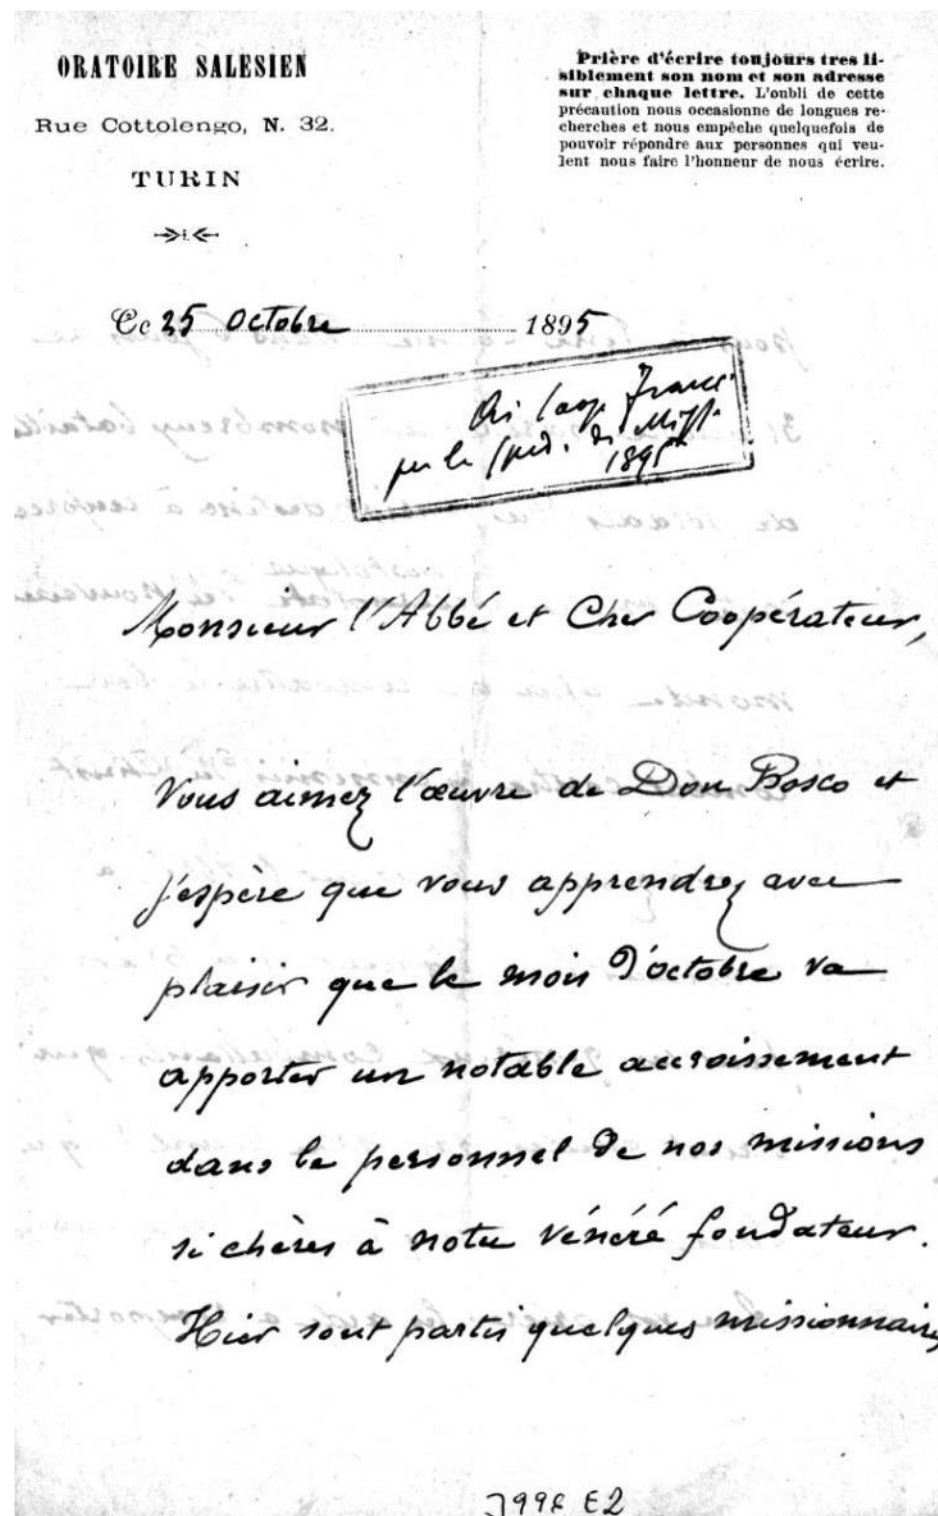 ORATOIRE SALESIEN
Rue Cottolengo, N. 32.
TURIN
Prière d'écrire toujours tres li-
siblement son nom et son adresse
sur chaque lettre. L'oubli de cette
précaution nous occasionne de longues re-
cherches et nous empêche quelquefois de
pouvoir répondre aux personnes qui veu-
lent nous faire l'honneur de nous écrire.
Ce 25 Octobre 1895
Ai Coop. Francesi
per la sped. di Miss.
1895
Monsieur l'Abbé et Cher Coopérateur,
Vous aimez l'œuvre de Don Bosco et
j'espère que vous apprendrez avec
plaisir que le mois d'octobre va
apporter un notable accroissement
dans le personnel de nos missions
si chères à notre vénéré fondateur.
Hier sont partis quelques missionnaires
E2